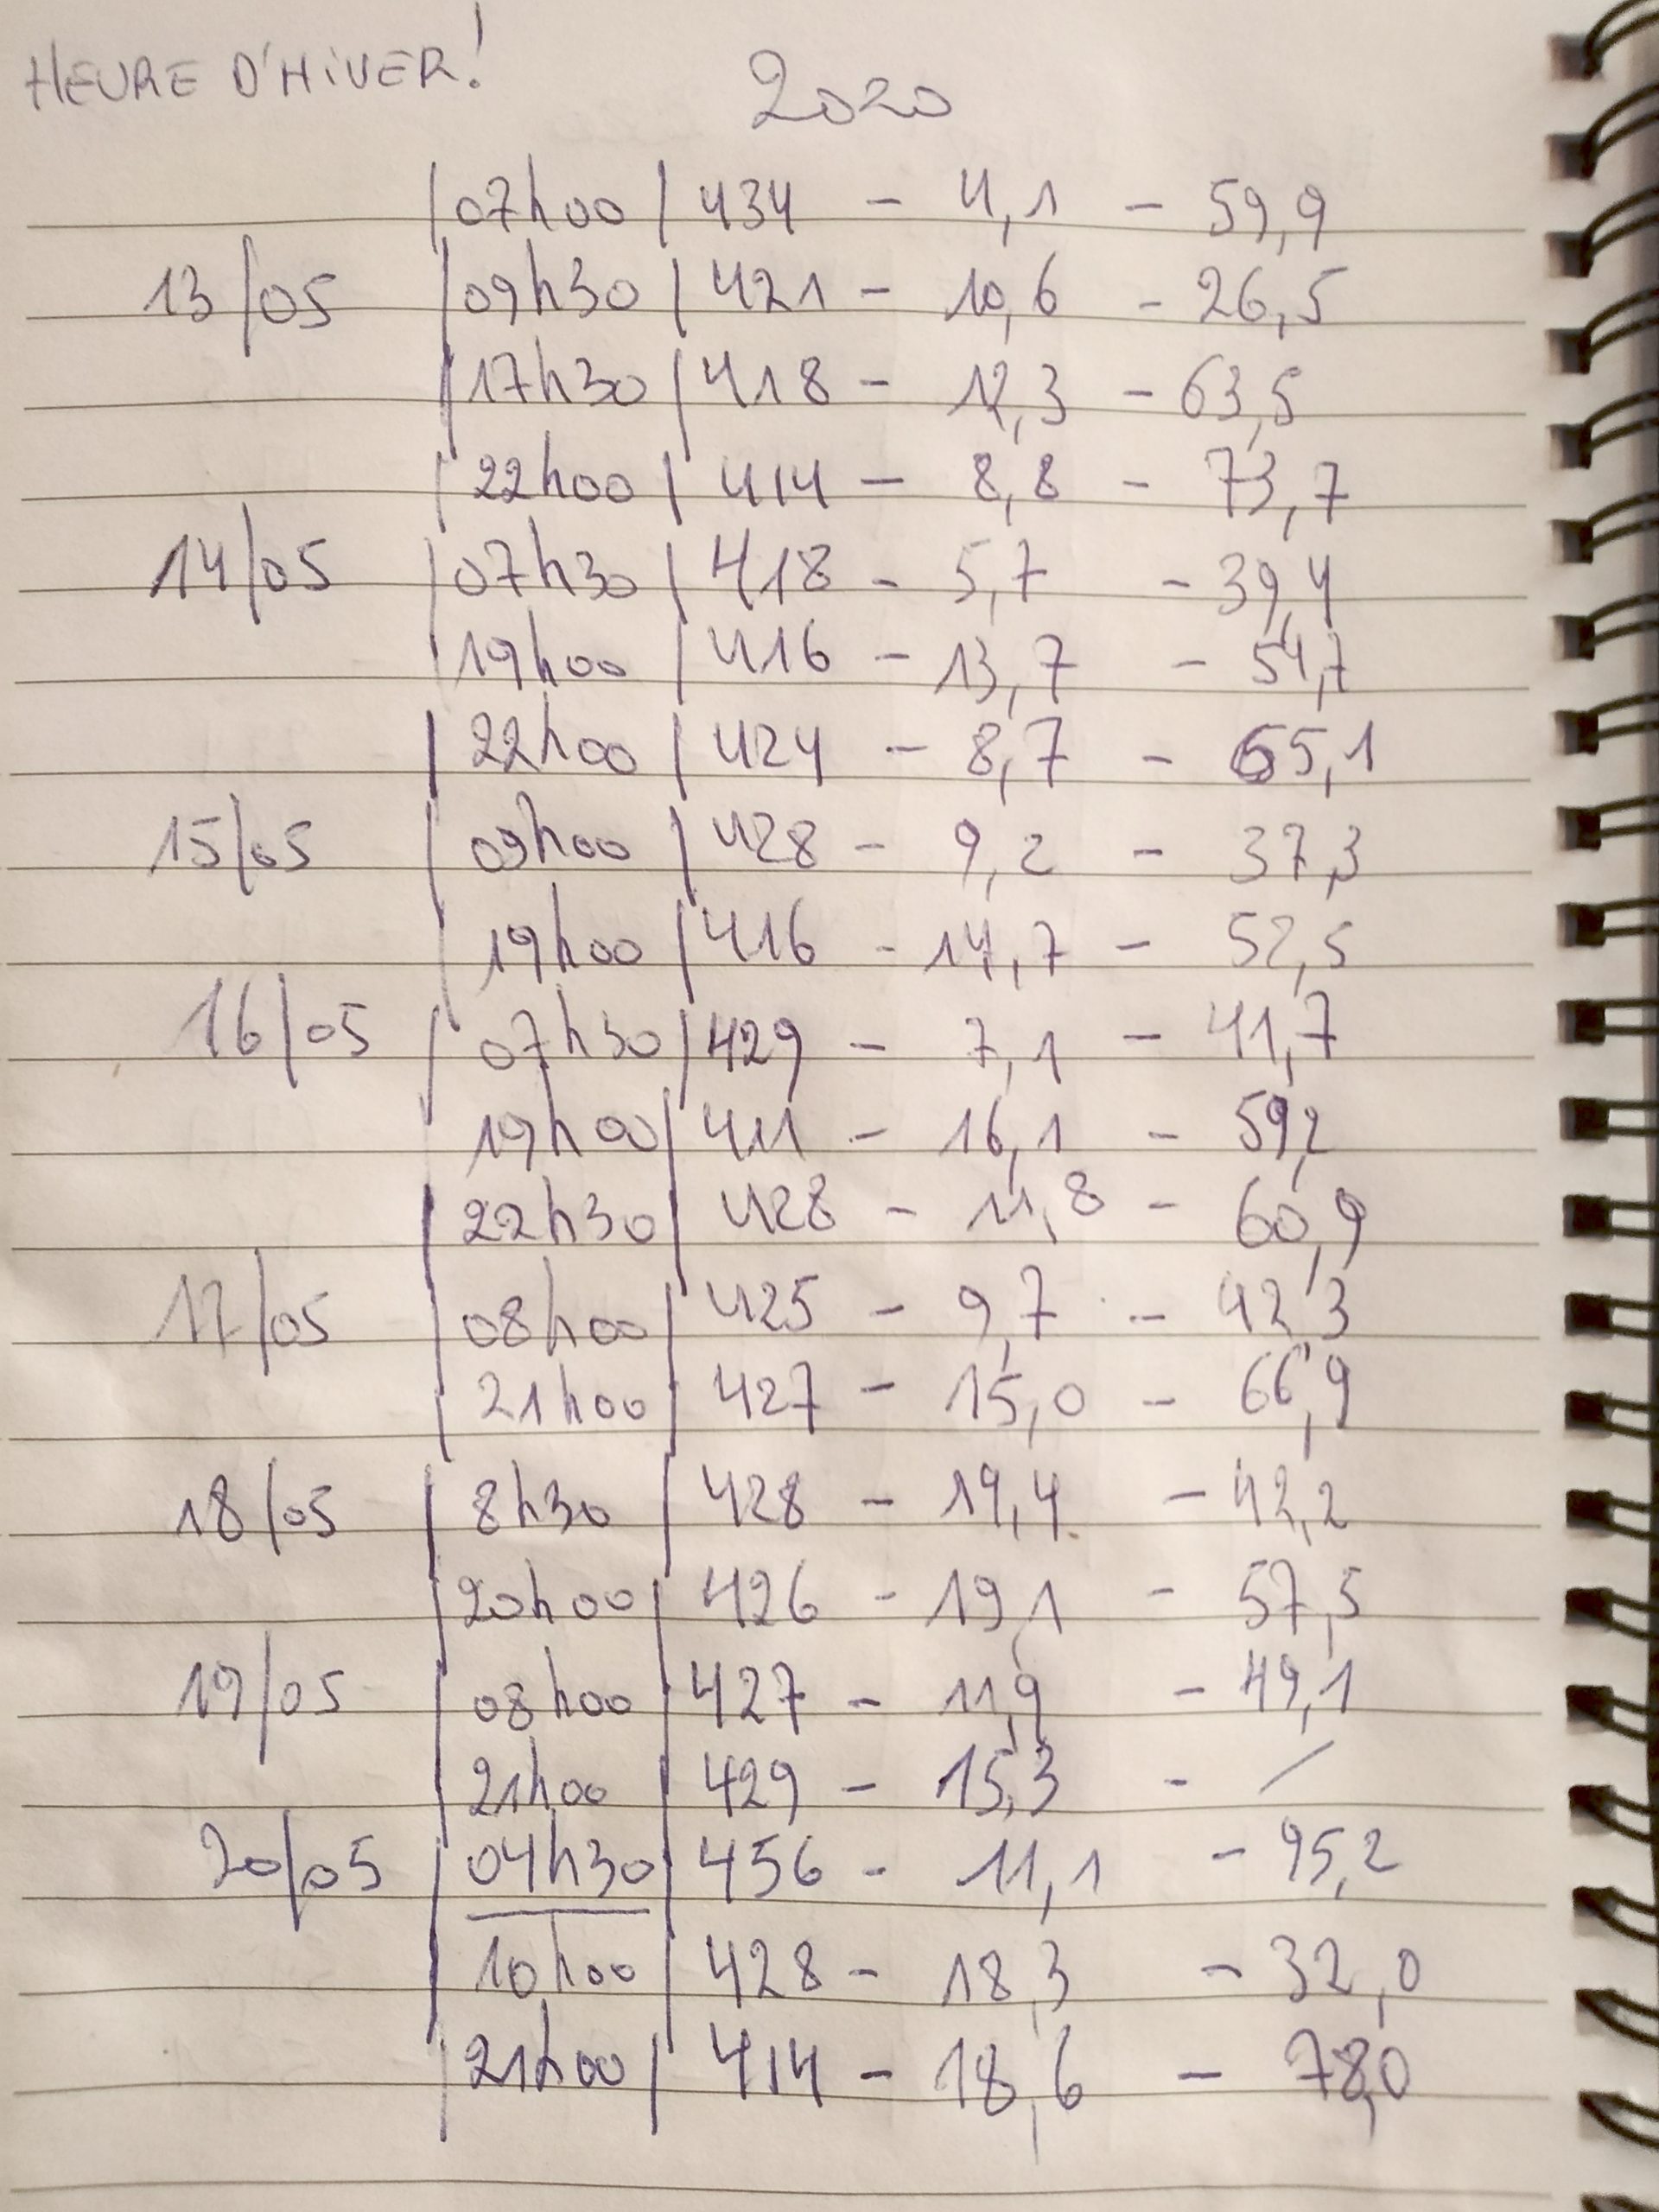 HEURE D'HIVER!
2020
|07h00| 434 - 4,1 - 59,9
13/05 |09h30| 421 - 10,6 - 26,5
|17h30| 418 - 12,3 - 63,5
|22h00| 414 - 8,8 - 73,7
14/05 |07h30| 418 - 5,7 - 39,4
|19h00| 416 - 13,7 - 54,7
|22h00| 424 - 8,7 - 65,1
15/05 |09h00| 428 - 9,2 - 37,3
|19h00| 416 - 14,7 - 52,5
16/05 |07h30| 429 - 7,1 - 41,7
|19h00| 411 - 16,1 - 59,2
|22h30| 428 - 11,8 - 60,9
17/05 |08h00| 425 - 9,7 - 42,3
|21h00| 427 - 15,0 - 66,9
18/05 |8h30| 428 - 19,4 - 42,2
|20h00| 426 - 19,1 - 57,5
19/05 |08h00| 427 - 11,9 - 49,1
|21h00| 429 - 15,3 - /
20/05 |04h30| 456 - 11,1 - 95,2
|10h00| 428 - 18,3 - 32,0
|21h00| 414 - 18,6 - 78,0